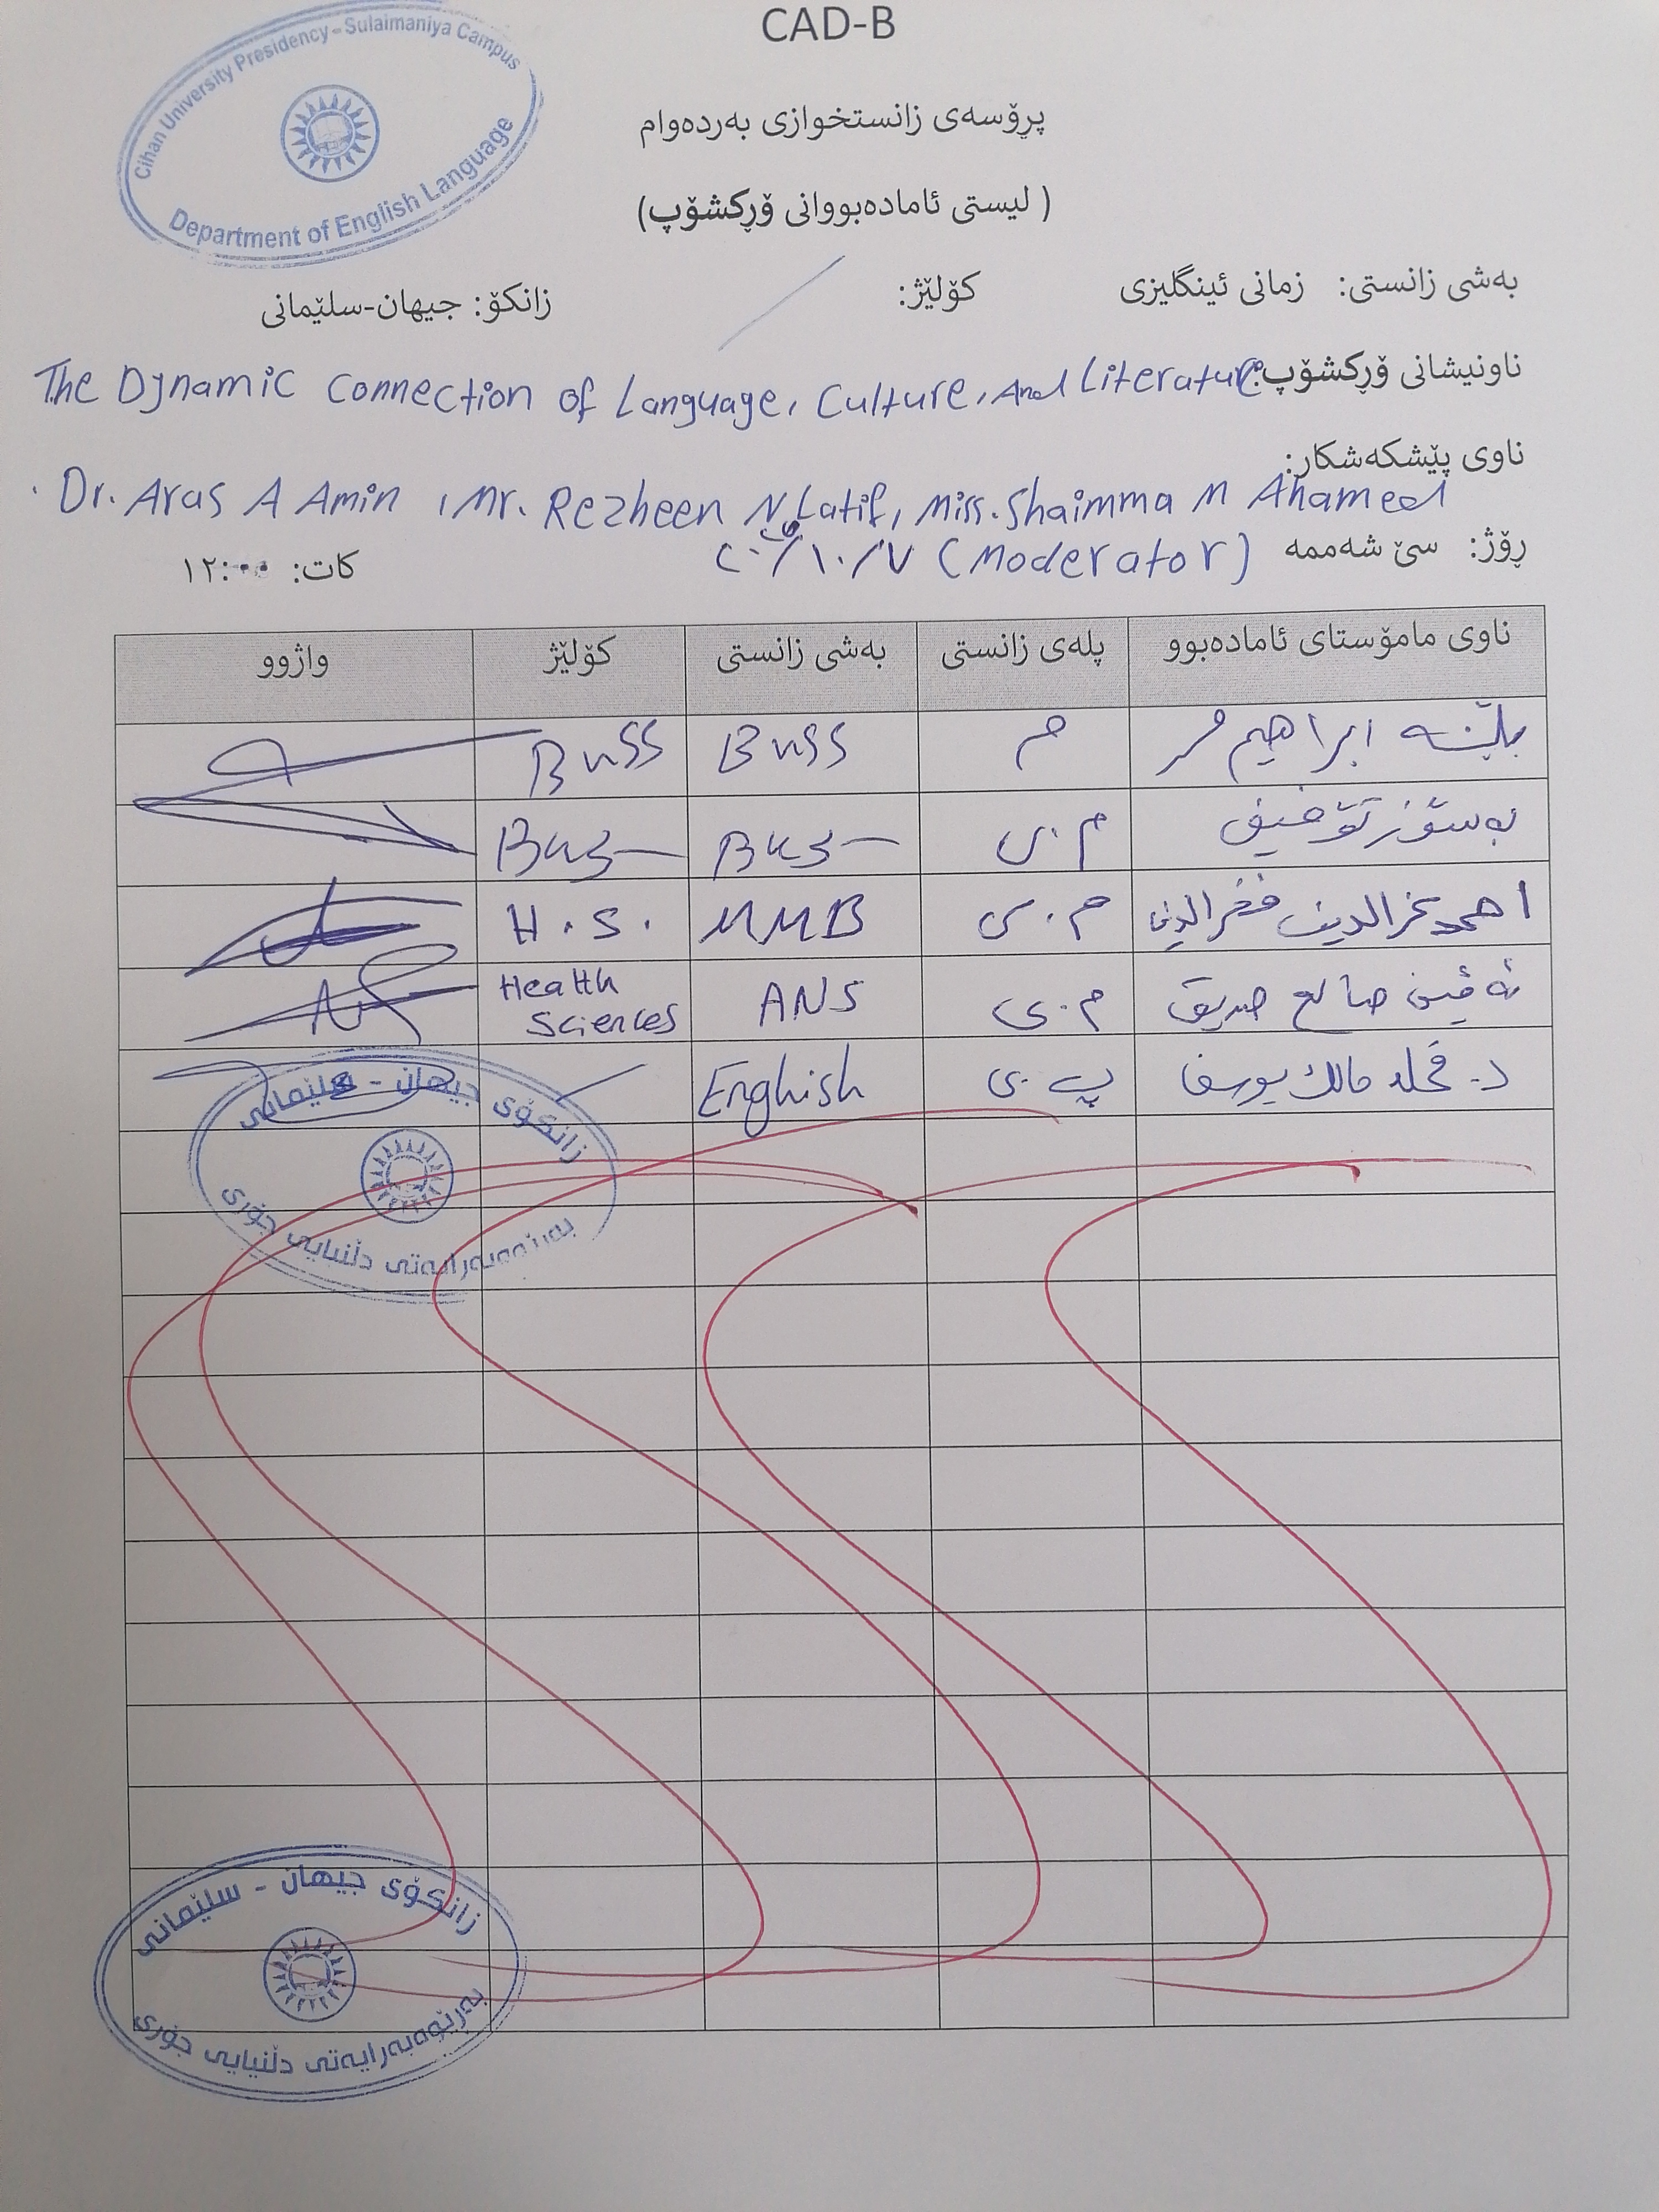 CAD-B
Cihan University Presidency - Sulaimaniya Campus
Department of English Language
پڕۆسەی زانستخوازی بەردەوام
( لیستی ئامادەبووانی ۆرکشۆپ)
بەشی زانستی: زمانی ئینگلیزی کۆلێژ: زانکۆ: جیهان-سلێمانی
ناونیشانی ۆرکشۆپ:
The Dynamic Connection of Language, Culture, And Literature
ناوی پێشکەشکار:
Dr. Aras A Amin , Mr. Rezheen N Latif, Miss. Shaimma M Ahameed
(Moderator)
ڕۆژ: سێ شەممە ١٠/٧ کات: ١٢:٠٠
ناوی مامۆستای ئامادەبوو پلەی زانستی بەشی زانستی کۆلێژ واژوو
ابراهیم م Buss Buss
تۆفیق م.ی Bus Bus
فخرالدین م.ی MMB H.S.
صالح صدیق م.ی ANS Health Sciences
د. مالك یوسف پ.ی English
زانکۆی جیهان - سلێمانی
بەڕێوەبەرایەتی دڵنیایی جۆری
زانکۆی جیهان - سلێمانی
بەڕێوەبەرایەتی دڵنیایی جۆری